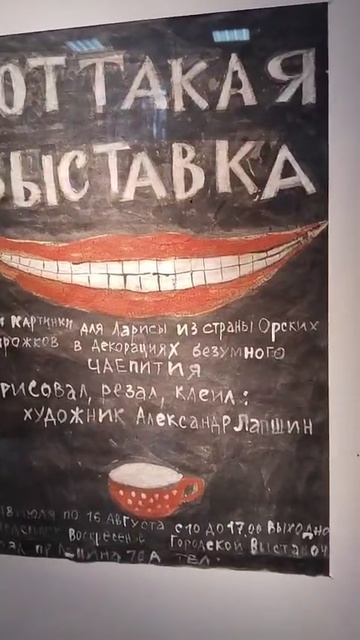 ОТТАКАЯ
ВЫСТАВКА
И КАРТИНКИ ДЛЯ ЛАРИСЫ ИЗ СТРАНЫ ОРСКИХ
РОЖКОВ В ДЕКОРАЦИЯХ БЕЗУМНОГО
ЧАЕПИТИЯ
РИСОВАЛ, РЕЗАЛ, КЛЕИЛ:
ХУДОЖНИК АЛЕКСАНДР ЛАПШИН
18 ИЮЛЯ ПО 16 АВГУСТА С 10 ДО 17.00 ВЫХОДНО
ВОСКРЕСЕНЬЕ ГОРОДСКОЙ ВЫСТАВОЧ
ЗАЛ ПР ЛЕНИНА 70А ТЕЛ.